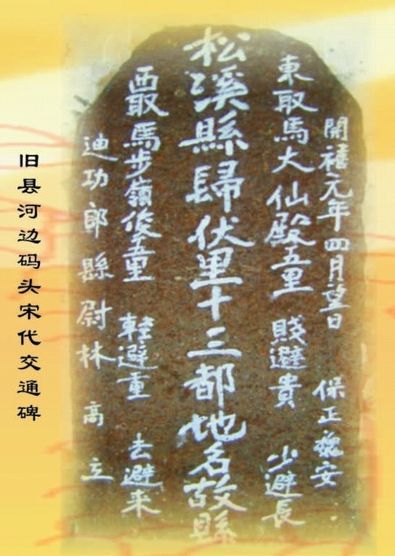 開禧元年四月望日 保正魏安
東取馬大仙殿五里 賤避貴 少避長
松溪縣歸伏里十三都地名故縣
西取馬步嶺後五里 輕避重 去避来
迪功郎縣尉林高立
旧县河边码头宋代交通碑